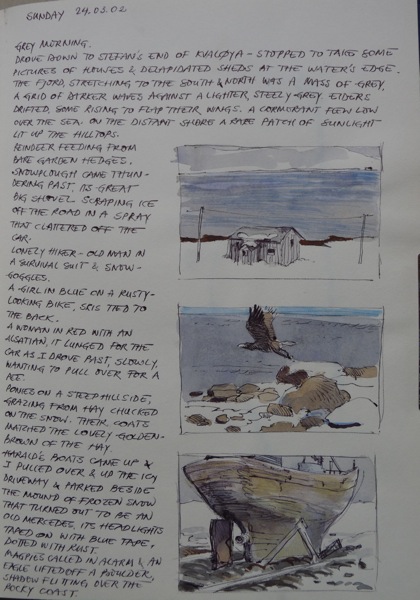 SUNDAY 24.03.02
GREY MORNING.
DROVE DOWN TO STEFAN'S END OF KVALØYA - STOPPED TO TAKE SOME
PICTURES OF HOUSES & DELAPIDATED SHEDS AT THE WATER'S EDGE.
THE FJORD, STRETCHING TO THE SOUTH & NORTH WAS A MASS OF GREY,
A GRID OF DARKER WAVES AGAINST A LIGHTER, STEELY-GREY. EIDERS
DRIFTED, SOME RISING TO FLAP THEIR WINGS. A CORMORANT FLEW LOW
OVER THE SEA. ON THE DISTANT SHORE A RARE PATCH OF SUNLIGHT
LIT UP THE HILLTOPS.
REINDEER FEEDING FROM
BARE GARDEN HEDGES.
SNOWPLOUGH CAME THUN-
DERING PAST, ITS GREAT
BIG SHOVEL SCRAPING ICE
OFF THE ROAD IN A SPRAY
THAT CLATTERED OFF THE
CAR.
LONELY HIKER - OLD MAN IN
A SURVIVAL SUIT & SNOW-
GOGGLES.
A GIRL IN BLUE ON A RUSTY-
LOOKING BIKE, SKIS TIED TO
THE BACK.
A WOMAN IN RED WITH AN
ALSATIAN, IT LUNGED FOR THE
CAR AS I DROVE PAST, SLOWLY,
WANTING TO PULL OVER FOR A
PEE.
PONIES ON A STEEP HILLSIDE,
GRAZING FROM HAY CHUCKED
ON THE SNOW. THEIR COATS
MATCHED THE LOVELY GOLDEN-
BROWN OF THE HAY
HARALD'S BOATS CAME UP &
I PULLED OVER & UP THE ICY
DRIVEWAY & PARKED BESIDE
THE MOUND OF FROZEN SNOW
THAT TURNED OUT TO BE AN
OLD MERCEDES, ITS HEADLIGHTS
TAPED ON WITH BLUE TAPE,
DOTTED WITH RUST.
MAGPIES CALLED IN ALARM & AN
EAGLE LIFTED OFF A BOULDER,
SHADOW FLITTING OVER THE
ROCKY COAST.